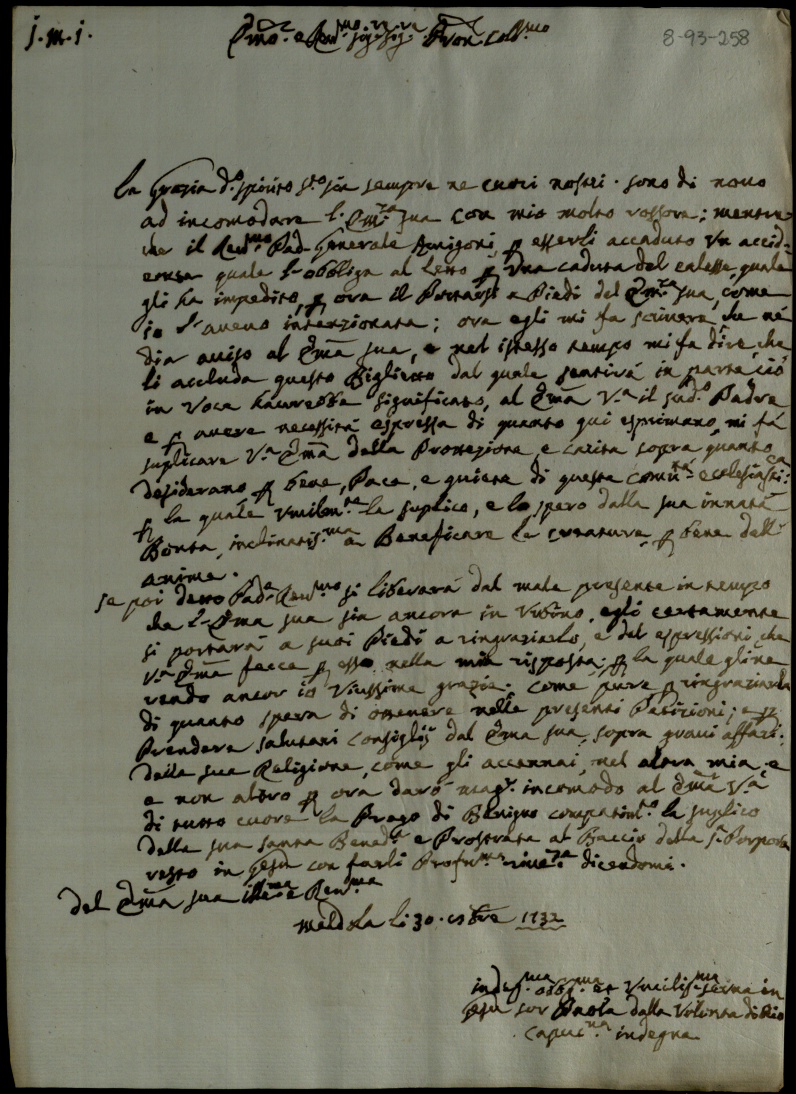 j. m. j.
Em.o e Rev.mo Sig.re Sig.re Pron Coll.mo
8-93-258
la Grazia d.o Spirito S.to sia sempre ne cuori nostri. sono di novo
ad incomodare l'Em.za sua con mio molto rossore; mentre
che il Rev.mo Pad. Generale Amigoni, p esserli accaduto un accid-
ente quale l'obbliga al letto p una caduta del calesse, quale
gli ha impedito, p ora il Portarsi a Piedi del Em.za sua, come
io l'aveva intenzionata; ora egli mi fa scrivere che ne
dia aviso al Ema sua, e nel istesso tempo mi fa dire, che
li accluda questo Biglietto dal quale sentirà in parte ciò
in voce haurebbe significato, al Ema V.a il sud.o Padre
e p avere necessità espressa di quanto qui esprimano, mi fa
suplicare V.a Ema della Protezione e carità sopra quanto
desiderano p bene, Pace, e quiete di questa comu.tà eclesiasti:ca
p la quale Umilm.te la suplico, e lo spero dalla sua innata
Bontà, inclinatis.ma a Beneficare le creature, p bene dell
anime.
se poi detto Pad.e Rev.mo si liberarà dal male presente in tempo
che l'Ema sua sia ancora in Urbino, egli certamente
si portarà a suoi Piedi a ringraziarlo, e del espressioni, che
V.a Ema fecce p esso nella mia risposta; p la quale gline
rendo ancor io vivissime grazie. come pure p ringraziarla
di quanto spera di ottenere nelle presenti Petizioni; e p
Prendere salutari Consiglij dal Ema sua, sopra gravi affari.
della sua Religione, come gli accennai, nel altra mia, e
e non altro p ora darò mag.r incomodo al Ema V.a
di tutto cuore la Prego di Benigno compatim.to la suplico
della sua santa Bened.e e Prostrata al Baccio della S. Porpora
resto in Gesù con farli Profon.ma river.za dicendomi.
del Ema sua ill.ma e Rev.ma
Meldola li 30. 1732
indeg.ma obbg.ma et Umilis.ma serva in
Gesù suor Paola dalla Volontà di Dio
Capuc.na indegna